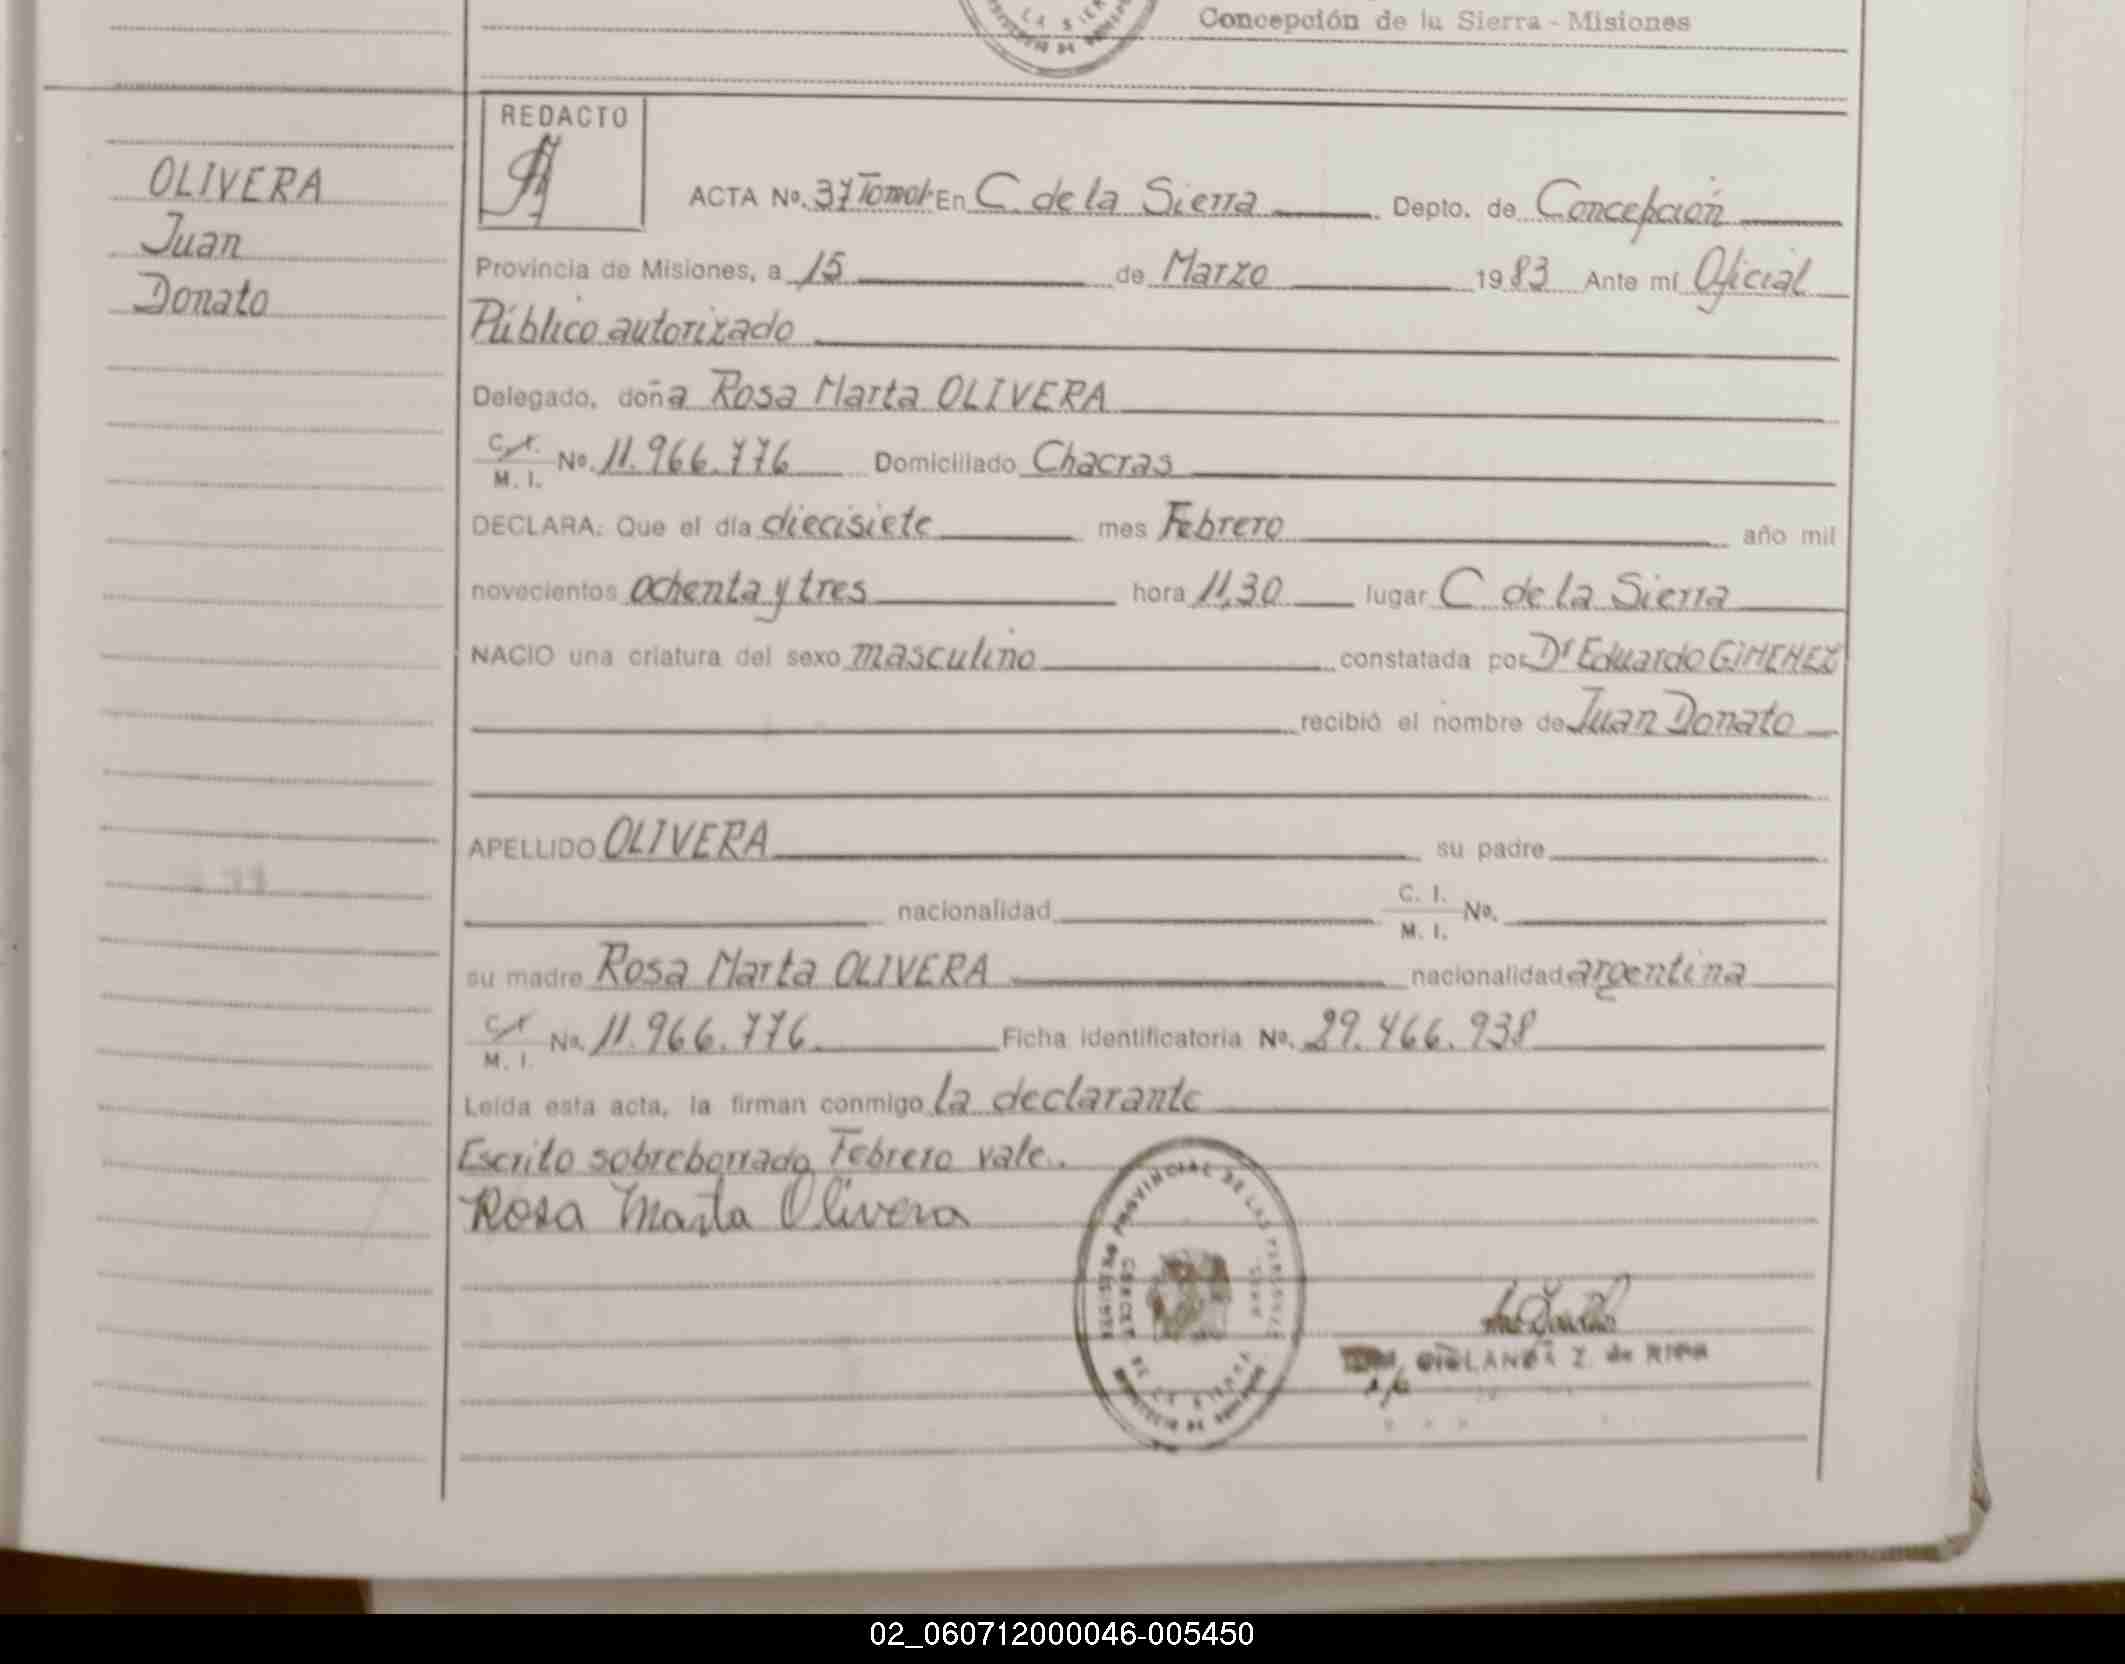 LA SIERRA
Concepción de la Sierra - Misiones
REDACTO
OLIVERA
Juan
Donato
ACTA No. 37 Tomo I En C. de la Sierra Depto. de Concepción
Provincia de Misiones, a 15 de Marzo 1983 Ante mí Oficial
Público autorizado
Delegado, doña Rosa Marta OLIVERA
C.I. M. I. No. 11.966.776 Domiciliado Chacras
DECLARA: Que el día diecisiete mes Febrero año mil
novecientos ochenta y tres hora 11,30 lugar C de la Sierra
NACIO una criatura del sexo masculino constatada por Dr Eduardo GIMENEZ
recibió el nombre de Juan Donato
APELLIDO OLIVERA su padre
nacionalidad C. I. M. I. No.
su madre Rosa Marta OLIVERA nacionalidad argentina
C.I. M. I. No. 11.966.776. Ficha identificatoria No. 29.466.938
Leída esta acta, la firman conmigo la declarante
Escrito sobreborrado Febrero vale.
Rosa Marta Olivera
REGISTRO PROVINCIAL DE LAS PERSONAS
DE LA SIERRA
Z. de
02_060712000046-005450